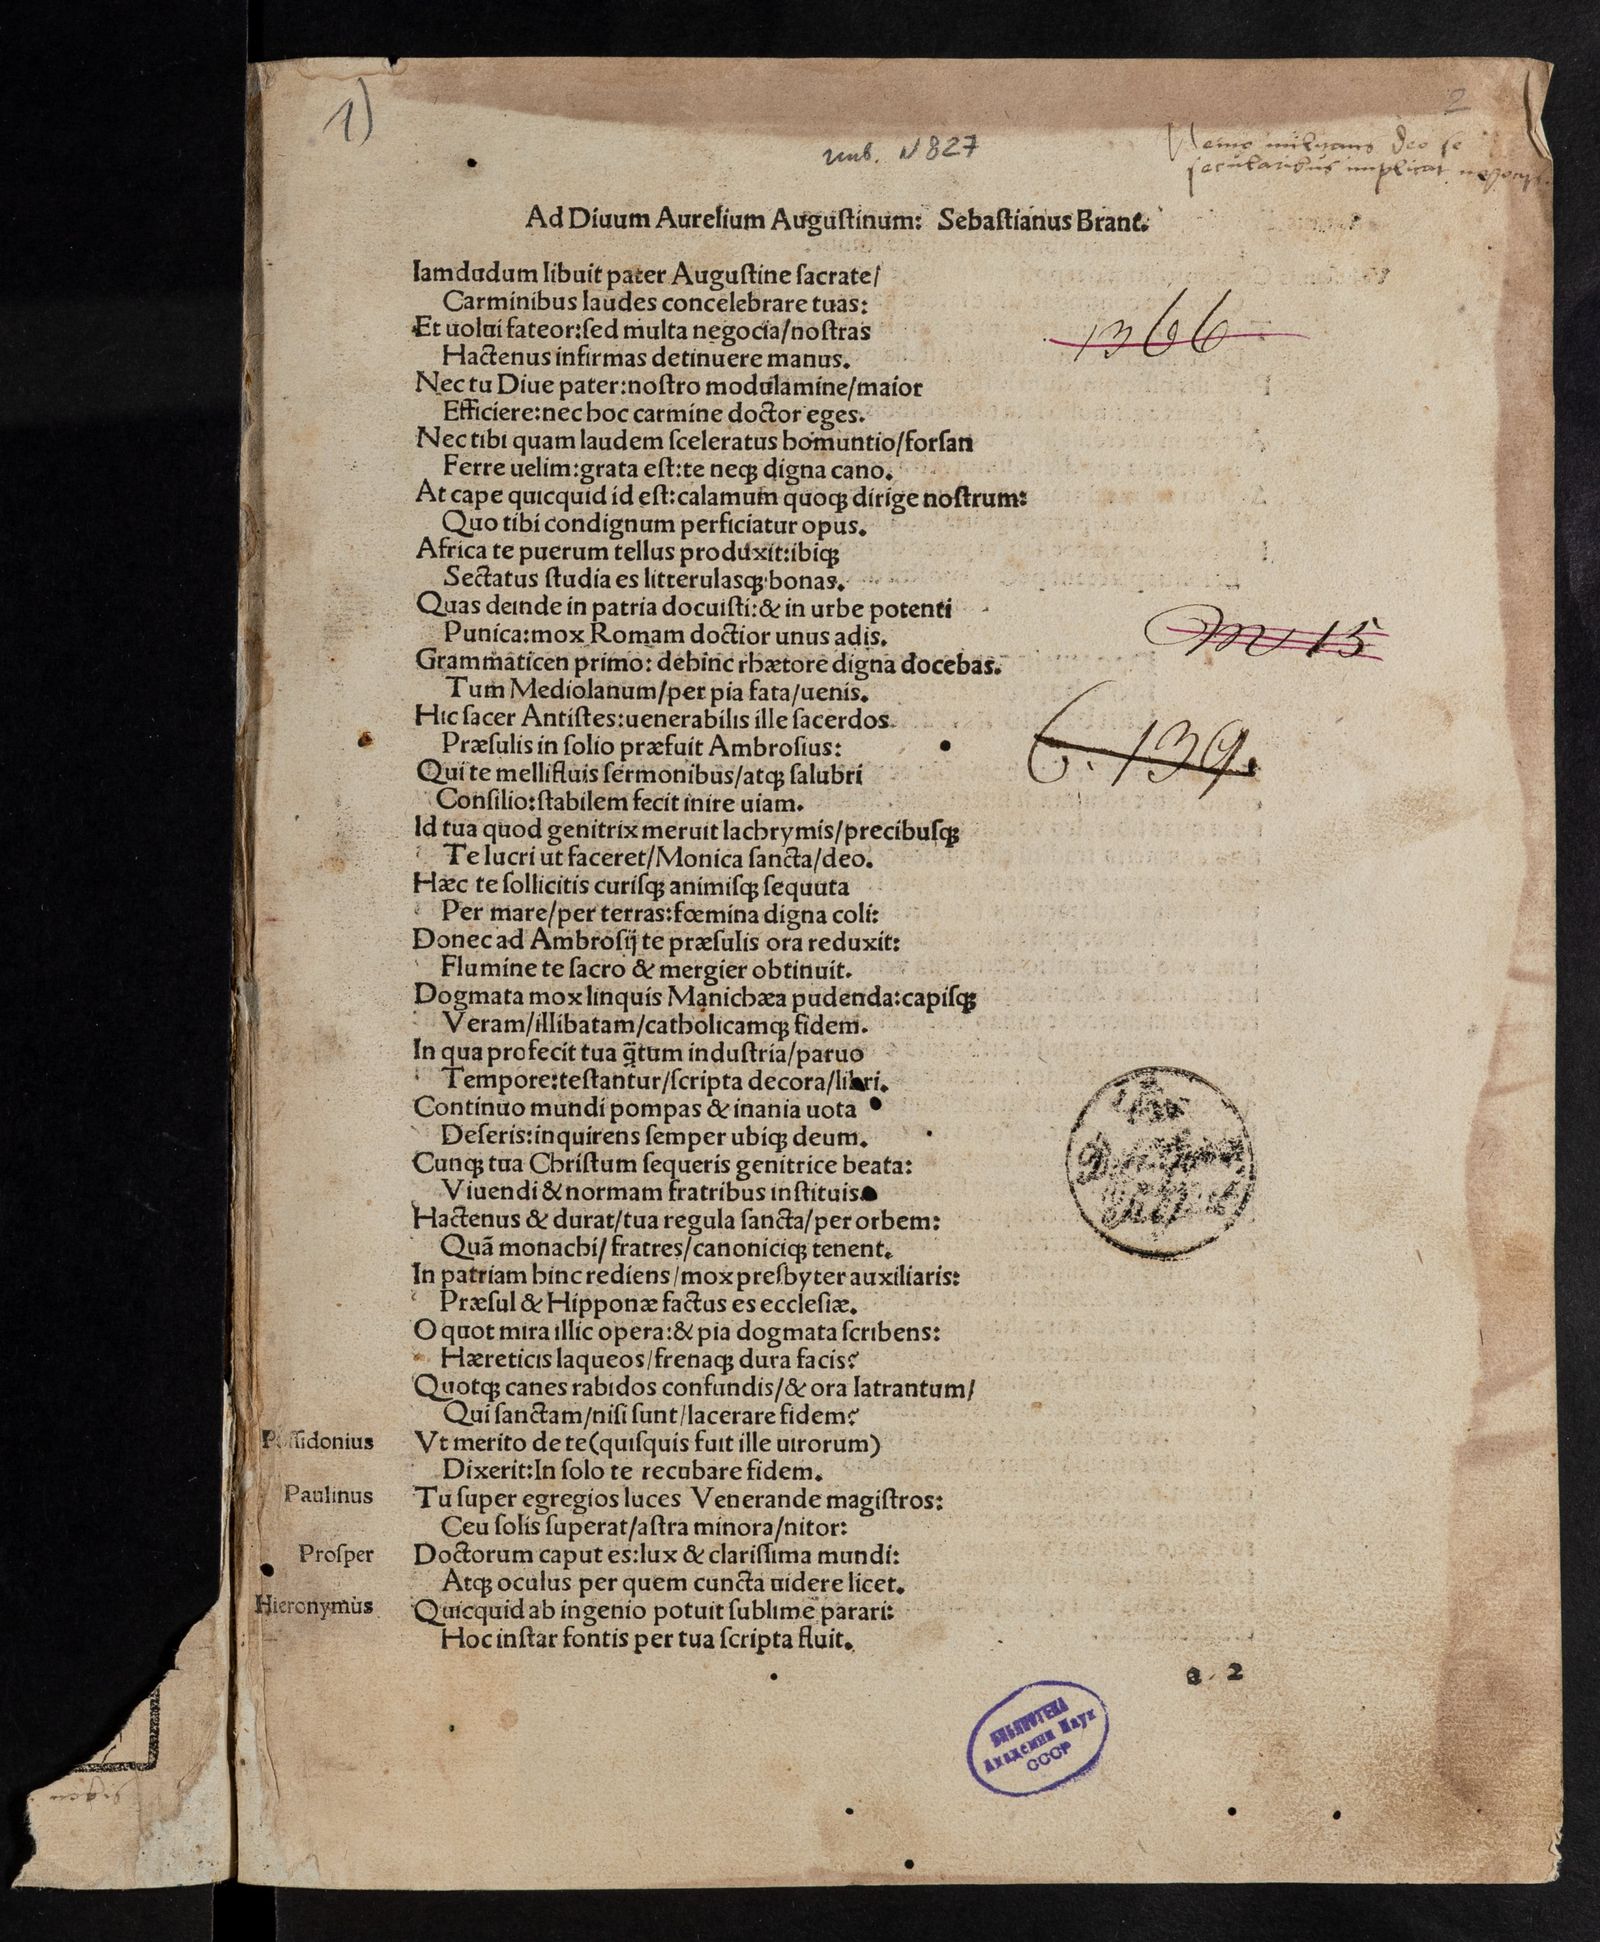 1)
2
инв. N 827
Nemo militans deo se
secularibus implicat negociis
Ad Diuum Aurelium Auguſtinum: Sebaſtianus Brant.
Iamdudum libuit pater Auguſtine ſacrate/
Carminibus laudes concelebrare tuas:
Et uolui fateor:ſed multa negocia/noſtras
Hactenus infirmas detinuere manus.
Nec tu Diue pater:noſtro modulamine/maior
Efficiere:nec hoc carmine doctor eges.
Nec tibi quam laudem ſceleratus homuntio/forſan
Ferre uelim:grata eſt:te neqꝫ digna cano.
At cape quicquid id eſt:calamum quoqꝫ dirige noſtrum:
Quo tibi condignum perficiatur opus.
Africa te puerum tellus produxit:ibiqꝫ
Sectatus ſtudia es litterulasqꝫ bonas.
Quas deinde in patria docuiſti:& in urbe potenti
Punica:mox Romam doctior unus adis.
Grammaticen primo: dehinc rhætore digna docebas.
Tum Mediolanum/per pia fata/uenis.
Hic ſacer Antiſtes:uenerabilis ille ſacerdos
Præſulis in ſolio præfuit Ambroſius:
Qui te mellifluis ſermonibus/atqꝫ ſalubri
Conſilio:ſtabilem fecit inire uiam.
Id tua quod genitrix meruit lachrymis/precibuſqꝫ
Te lucri ut faceret/Monica ſancta/deo.
Hæc te ſollicitis curiſqꝫ animiſqꝫ ſequuta
Per mare/per terras:fœmina digna coli:
Donec ad Ambroſij te præſulis ora reduxit:
Flumine te ſacro & mergier obtinuit.
Dogmata mox linquis Manichæa pudenda:capiſqꝫ
Veram/illibatam/catholicamqꝫ fidem.
In qua profecit tua q̄tum induſtria/paruo
Tempore:teſtantur/ſcripta decora/libri.
Continuo mundi pompas & inania uota
Deſeris:inquirens ſemper ubiqꝫ deum.
Cunqꝫ tua Chriſtum ſequeris genitrice beata:
Viuendi & normam fratribus inſtituis.
Hactenus & durat/tua regula ſancta/per orbem:
Quã monachi/ fratres/canoniciqꝫ tenent.
In patriam hinc rediens/mox preſbyter auxiliaris:
Præſul & Hipponæ factus es eccleſiæ.
O quot mira illic opera:& pia dogmata ſcribens:
Hæreticis laqueos/frenaqꝫ dura facis?
Quotqꝫ canes rabidos confundis/& ora latrantum/
Qui ſanctam/niſi ſunt/lacerare fidem?
Poſſidonius Vt merito de te(quiſquis fuit ille uirorum)
Dixerit:In ſolo te recubare fidem.
Paulinus Tu ſuper egregios luces Venerande magiſtros:
Ceu ſolis ſuperat/aſtra minora/nitor:
Proſper Doctorum caput es:lux & clariſſima mundi:
Atqꝫ oculus per quem cuncta uidere licet.
Hieronymus Quicquid ab ingenio potuit ſublime parari:
Hoc inſtar fontis per tua ſcripta fluit.
a 2
1366
15
6. 139.
БИБЛИОТЕКА
Академии Наук
СССР